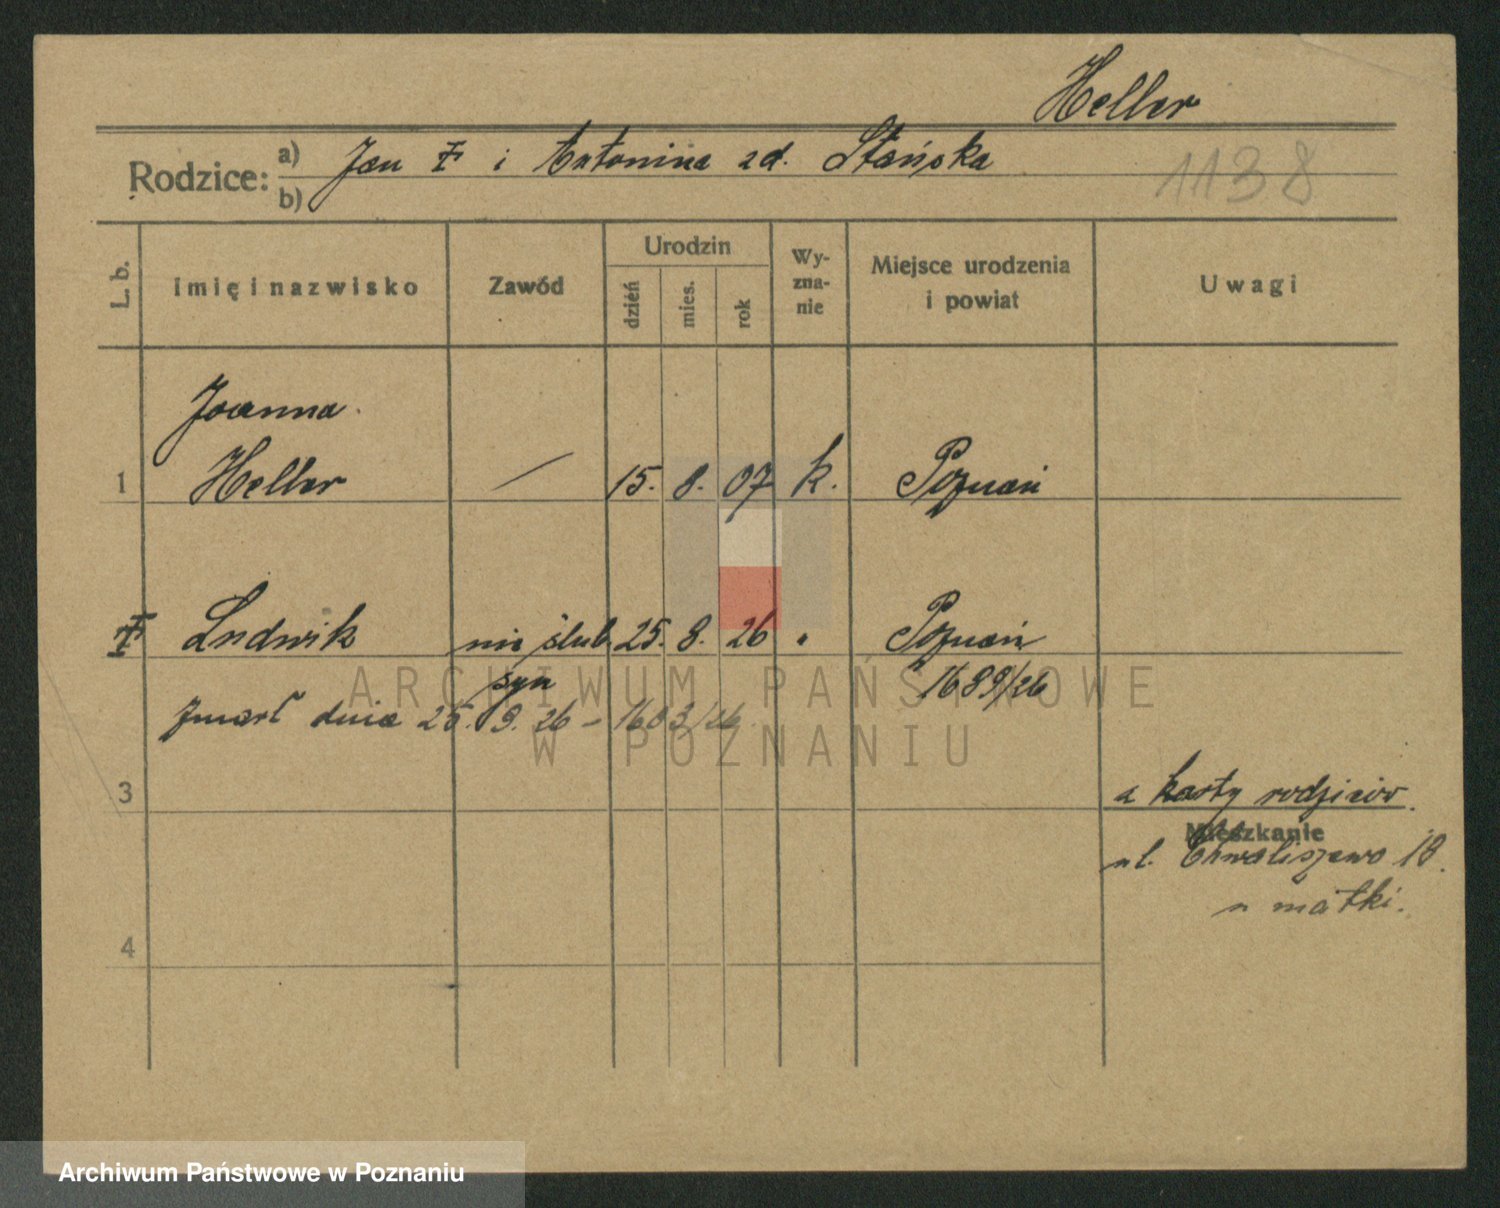 Heller
Rodzice: a) Jan i Antonina zd. Stańska
b)
1138
L. b. imię i nazwisko Zawód Urodzin dzień mies. rok Wyznanie Miejsce urodzenia i powiat Uwagi
Joanna
1 Heller — 15. 8. 07 k. Poznań
Ludwik nie ślub. 25. 8. 26 " Poznań
syn 1689/26
Zmarł dnia 25. 9. 26 – 1683/26.
3
z karty rodziców.
Mieszkanie
ul. Chwaliszewo 18.
u matki.
4
ARCHIWUM PAŃSTWOWE
W POZNANIU
Archiwum Państwowe w Poznaniu